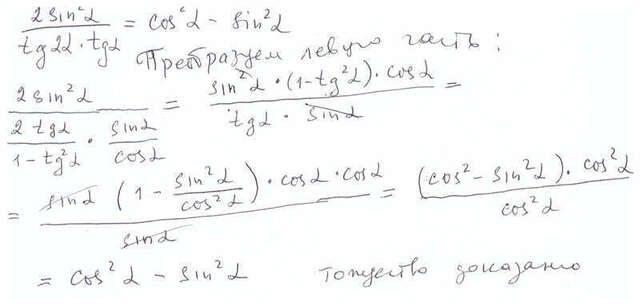 2sin²α / (tg2α · tgα) = cos²α - sin²α
Преобразуем левую часть:
2sin²α / ((2tgα / (1 - tg²α)) · (sinα / cosα)) = (sin²α · (1 - tg²α) · cosα) / (tgα · sinα) =
= (sinα (1 - sin²α / cos²α) · cosα · cosα) / sinα = ((cos² - sin²α) · cos²α) / cos²α
= cos²α - sin²α тождество доказано